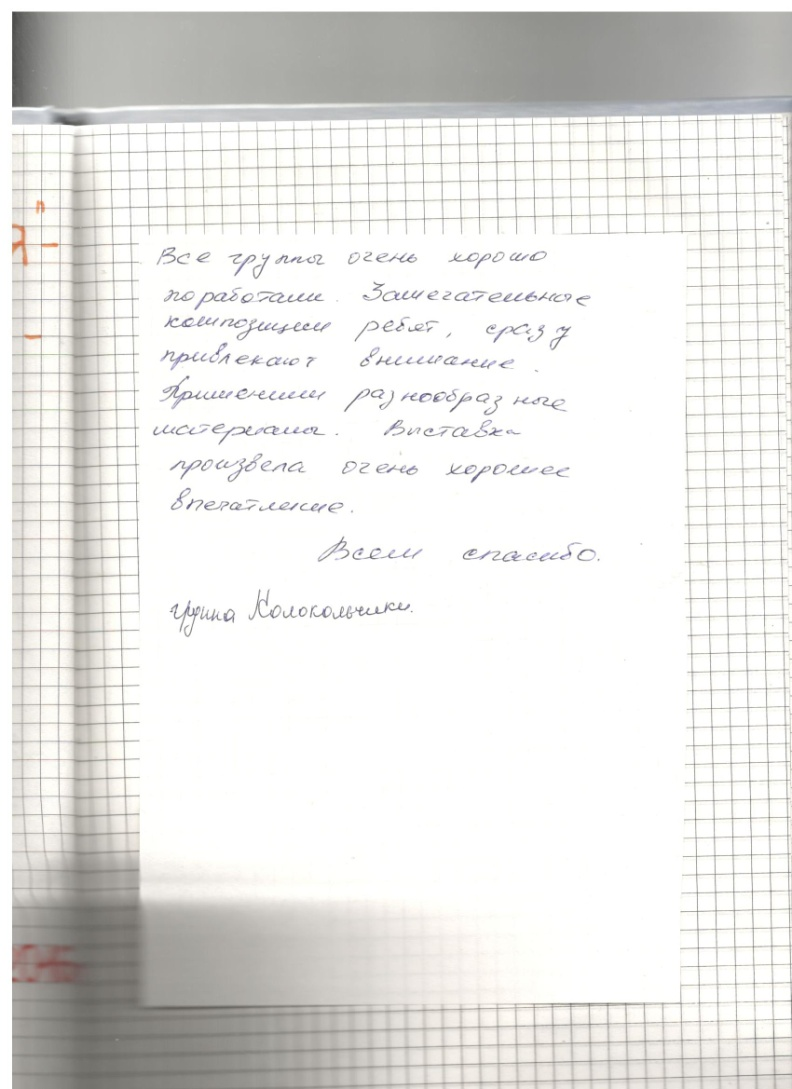 Все группы очень хорошо
поработали. Замечательные
композиции ребят, сразу
привлекают внимание.
Применили разнообразные
материалы. Выставка
произвела очень хорошее
впечатление.
Всем спасибо.
группа Колокольчики.